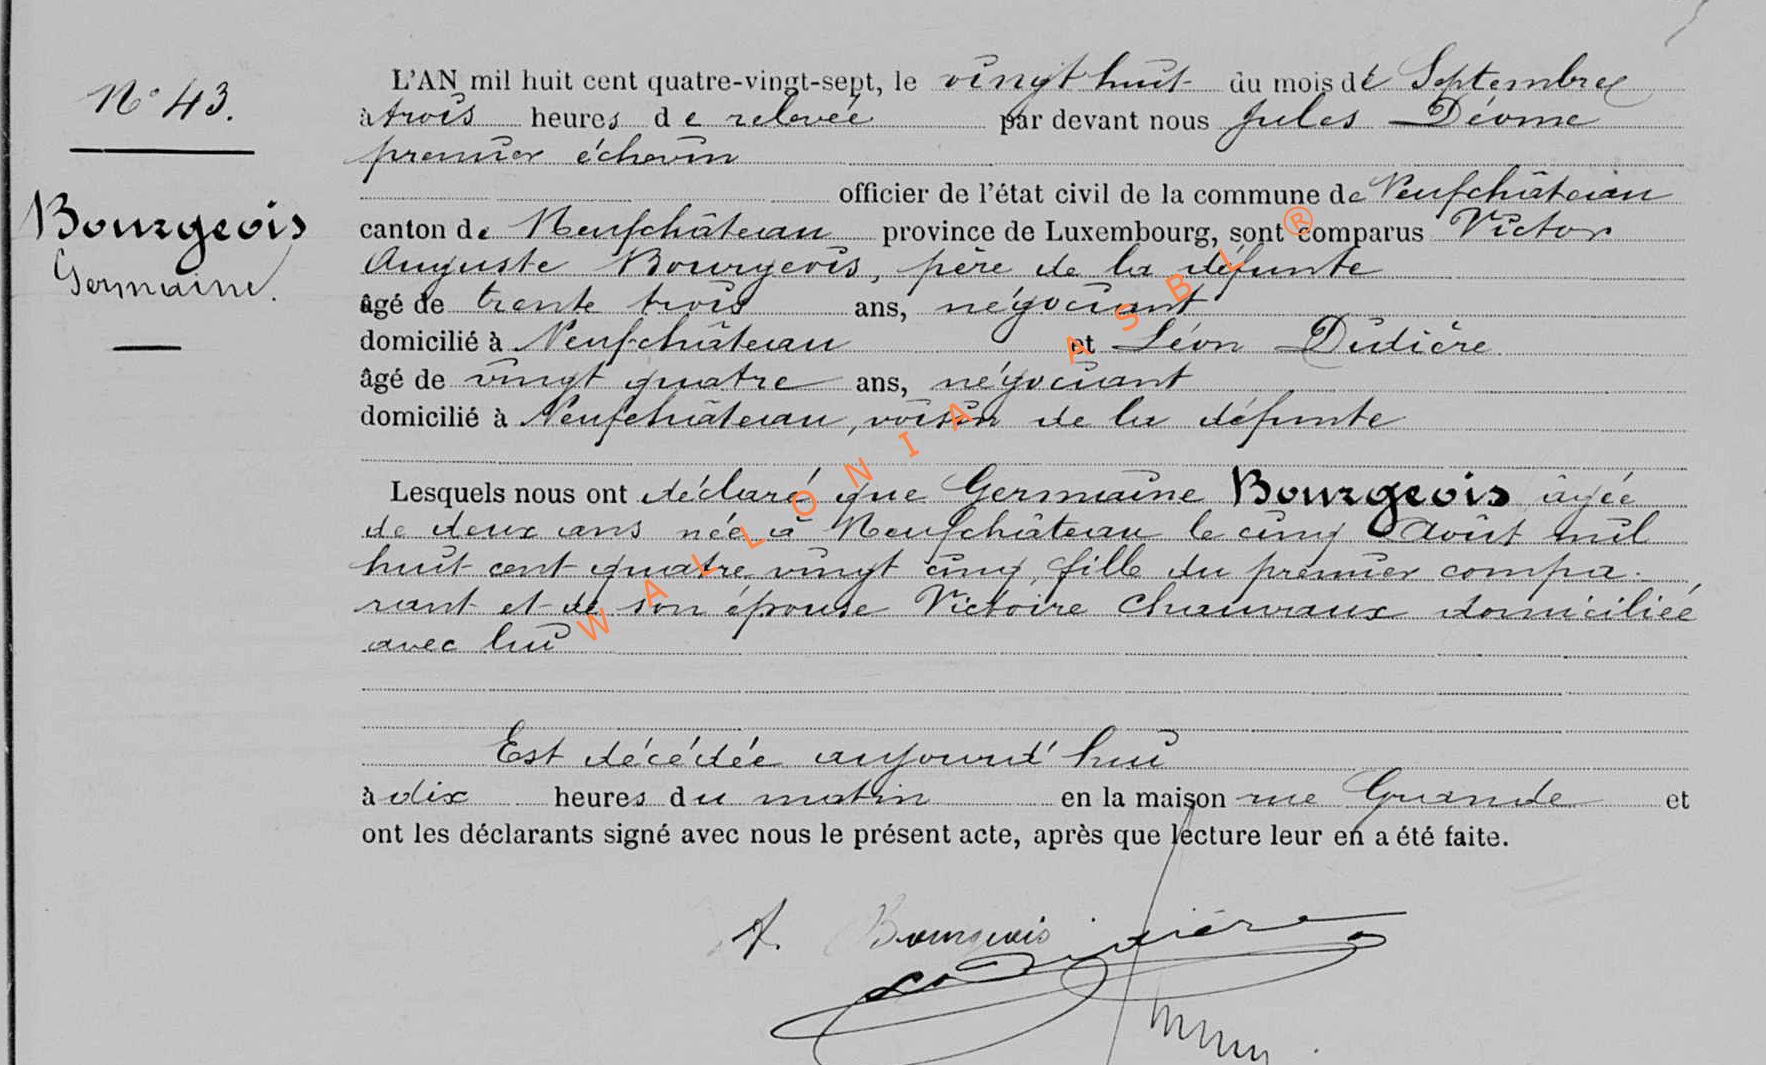 N° 43.
Bourgeois
Germaine.
L'AN mil huit cent quatre-vingt-sept, le vingt huit du mois de Septembre
à trois heures de relevée par devant nous Jules Déome
premier échevin
officier de l'état civil de la commune de Neufchâteau
canton de Neufchâteau province de Luxembourg, sont comparus Victor
Auguste Bourgeois, père de la défunte
âgé de trente trois ans, négociant
domicilié à Neufchâteau et Léon Didière
âgé de vingt quatre ans, négociant
domicilié à Neufchâteau, voisin de la défunte
Lesquels nous ont déclaré que Germaine Bourgeois âgée
de deux ans née à Neufchâteau le cinq Août mil
huit cent quatre vingt cinq, fille du premier compa-
rant et de son épouse Victoire Chauvaux domiciliée
avec lui
Est décédée aujourd'hui
à dix heures du matin en la maison rue Grande et
ont les déclarants signé avec nous le présent acte, après que lecture leur en a été faite.
A. Bourgeois
Didière
WALLONIA ASBL ®